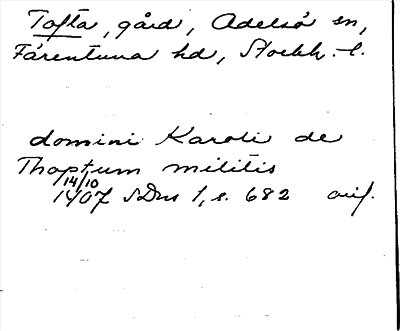 Tofta, gård, Adelsö sn,
Färentuna hd, Stockh. l.
domini Karoli de
Thoptum militis
14/10
1407 SDns 1, s. 682 avj.